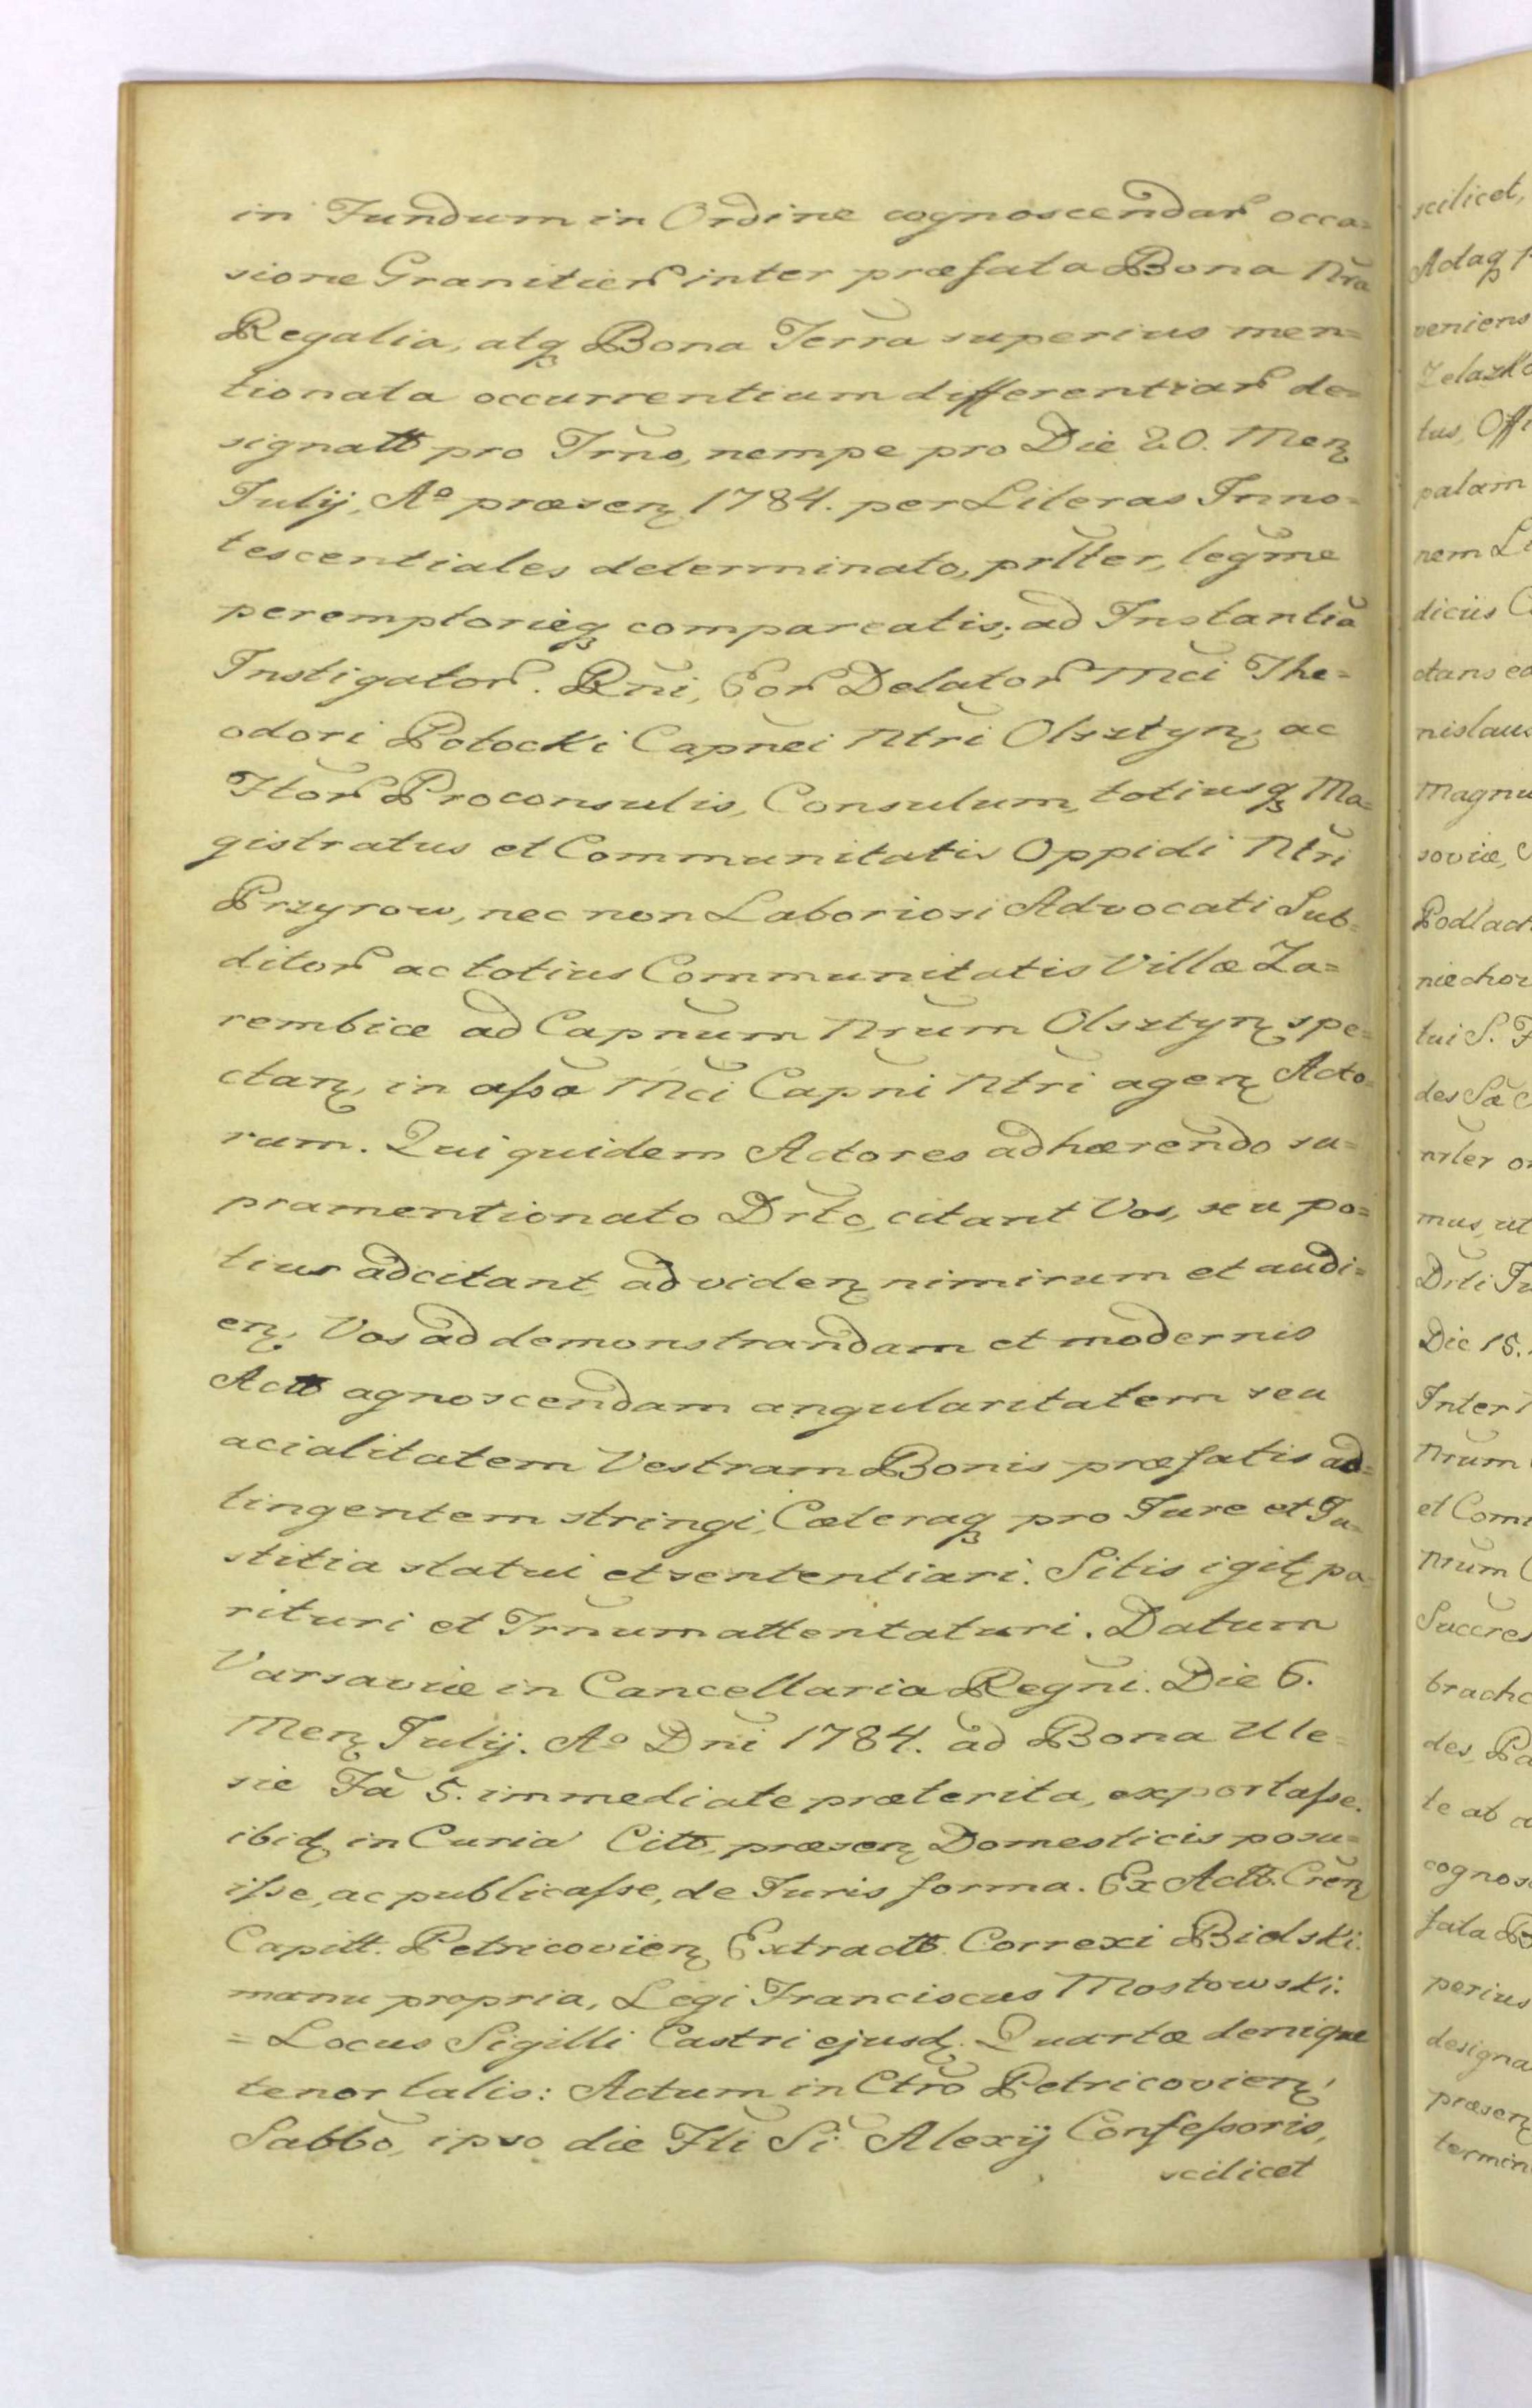 in Fundum in Ordine cognoscendar occa=
sione Granitier inter præfata Bona Nra
Regalia, atq Bona Terra superius men=
tionata occurrentium differentiar de=
signatt pro Trno, nempe pro Die 20. Men
Julij, Aº præsen 1784. per Literas Inno=
tescentiales determinato, prlter, legme
peremptorieq compareatis; ad Instantia
Instigator. Rni, Eor Delator Mci The=
odori Potocki Capnei Ntri Olsztyn, ac
Htor Proconsulis, Consulum, totiusq Ma=
gistratus et Communitatis Oppidi Ntri
Przyrow, nec non Laboriosi Advocati Sub=
ditor ac totius Communitatis Villæ Za=
rembice ad Capnum Nrum Olsztyn spe=
ctan, in assa Mci Capni Ntri agen Acto=
rum. Qui quidem Actores adhærendo su=
pramentionato Drto, citant Vos, seu po=
tius adcitant ad viden nimirum et audi=
en, Vos ad demonstrandam et modernis
Actt agnoscendam angularitatem seu
acialitatem Vestram Bonis præfatis ad=
tingentem stringi, Cæteraq pro Jure et Ju=
stitia statui et sententiari. Sitis igit pa=
rituri et Trnum attentaturi. Datum
Varsaviæ in Cancellaria Regni. Die 6.
Men Julij. Aº Dni 1784. ad Bona Ule=
sie Fa 5. immediate præterita, exportasse.
ibid in Curia Citt. præsen Domesticis posu=
isse, ac publicasse, de Juris forma. Ex Actt. Cren
Capitt. Petricovien Extractt. Correxi Bielski.
manu propria, Legi Franciscus Mostowski.
= Locus Sigilli Castri ejusd. Quartæ denique
tenor talis: Actum in Ctro Petricovien,
Sabbo, ipso die Fti Si Alexij Confessoris,
scilicet
scilicet,
Adaq
veniens
Zelazk
tus, Offi
palam
nem
diciis
ctans
nislaus
Magnu
soviæ,
Podlach
niechor
tui S.
des Sæ
nrter
mus, ut
Drti
Die 15.
Inter
Nrum
et Com
Nrum
Succres
brach
des,
te ab
cognos
fata
perius
designa
præsen
termin